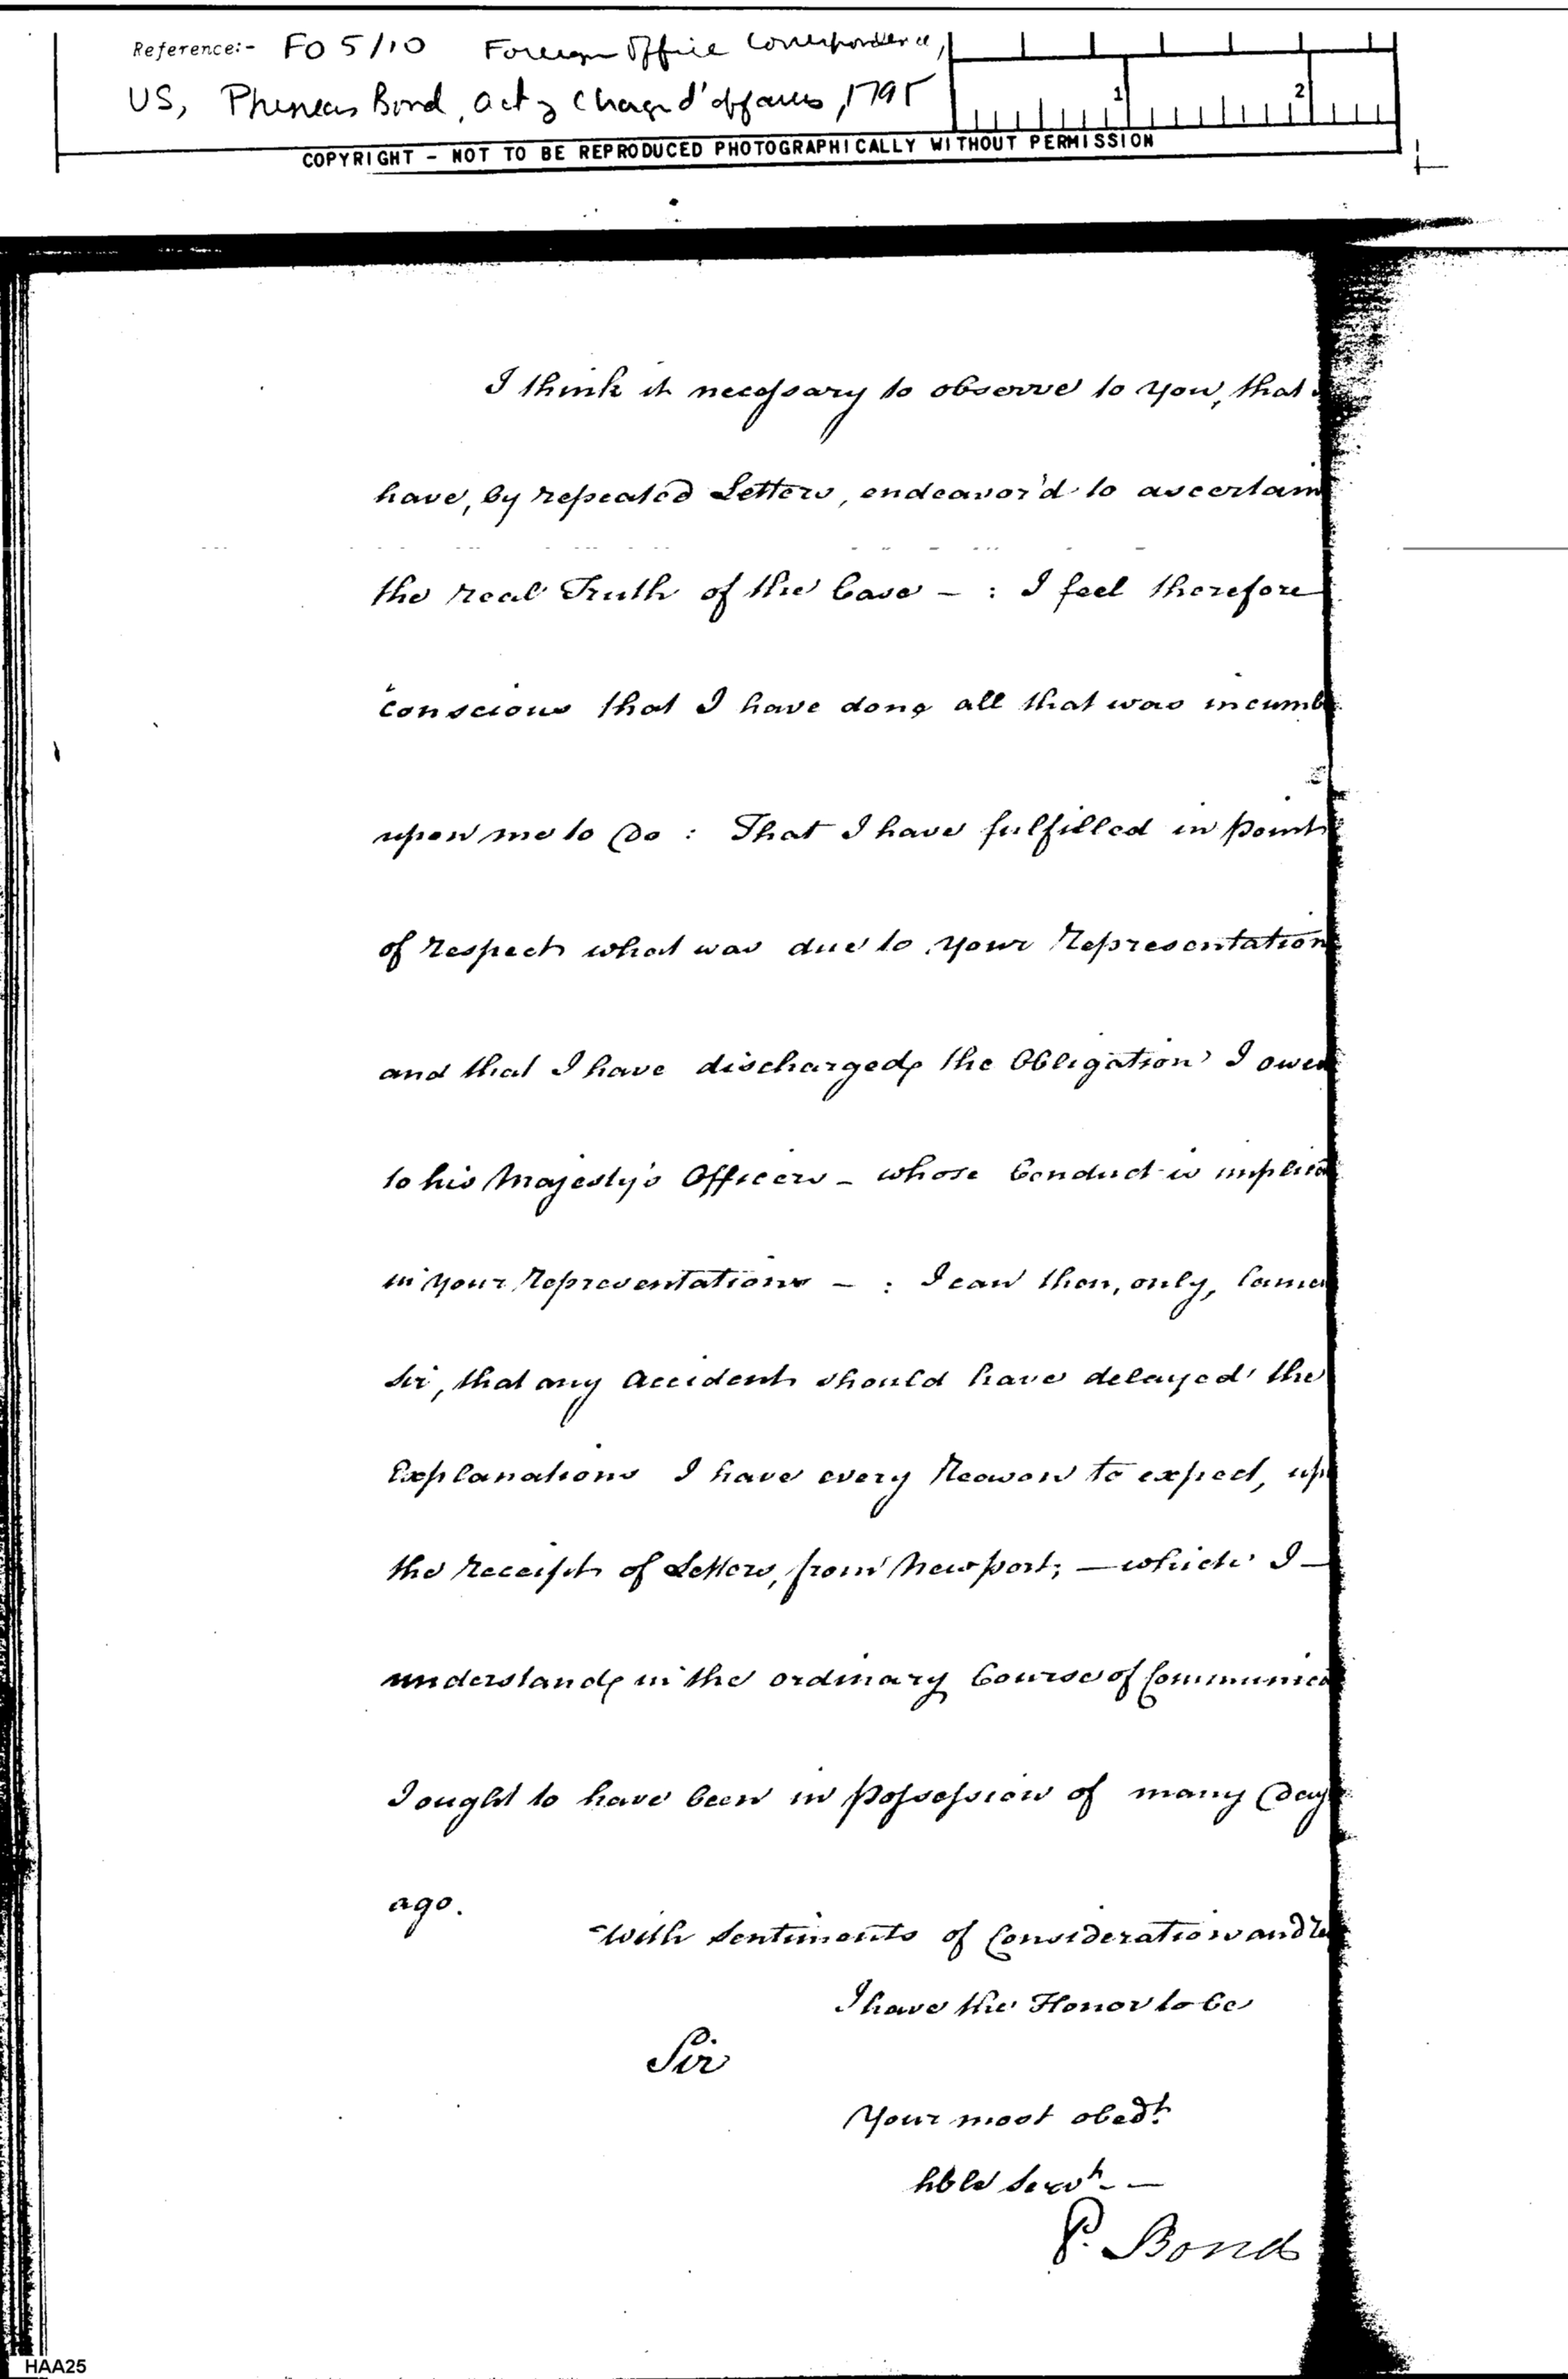 Reference:- FO 5/10 Foreign Office Correspondence,
US, Phineas Bond, actg Chargé d'affaires, 1795
1 2
COPYRIGHT - NOT TO BE REPRODUCED PHOTOGRAPHICALLY WITHOUT PERMISSION
I think it necessary to observe to you, that
have, by repeated Letters, endeavor'd to ascertain
the real Truth of the Case – : I feel therefore
conscious that I have done all that was incumb
upon me to do : That I have fulfilled in point
of respect what was due to your Representation
and that I have discharged the Obligation I owed
to his Majesty's Officers – whose Conduct is implica
in your Representations – : I can then, only, lamen
Sir, that any accident should have delayed the
Explanations I have every Reason to expect, up
the Receipt of Letters, from Newport; — which I —
understand in the ordinary Course of Communica
I ought to have been in possession of many days
ago.
With Sentiments of Consideration and Re
I have the Honor to be
Sir
Your most obedt.
hble Servt. —
P. Bond
HAA25